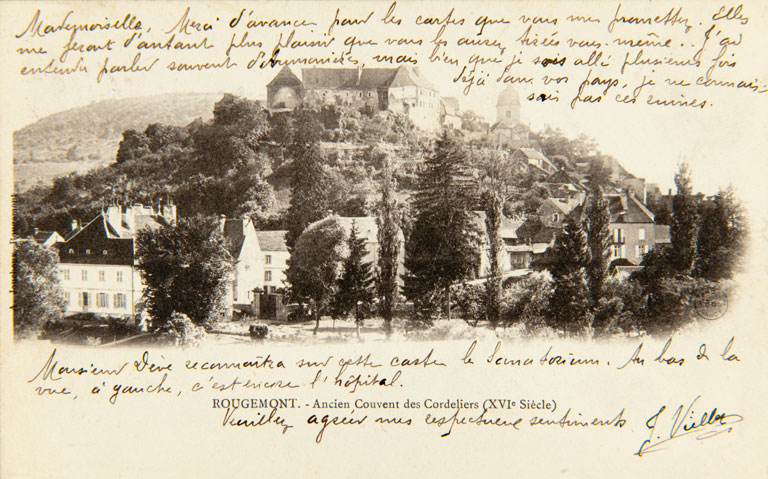 Mademoiselle, Merci d'avance pour les cartes que vous me promettez. Elles
me feront d'autant plus plaisir que vous les aurez tirées vous-même.. J'ai
entendu parler souvent d'            , mais bien que je sois allé plusieurs fois
déjà dans vos pays, je ne connais-
sais pas ces ruines.
Monsieur Dève reconnaîtra sur cette carte le Sanatorium. Au bas de la
vue, à gauche, c'est encore l'hôpital.
ROUGEMONT. - Ancien Couvent des Cordeliers (XVIe Siècle)
Veuillez agréer mes respectueux sentiments
J. Viellet